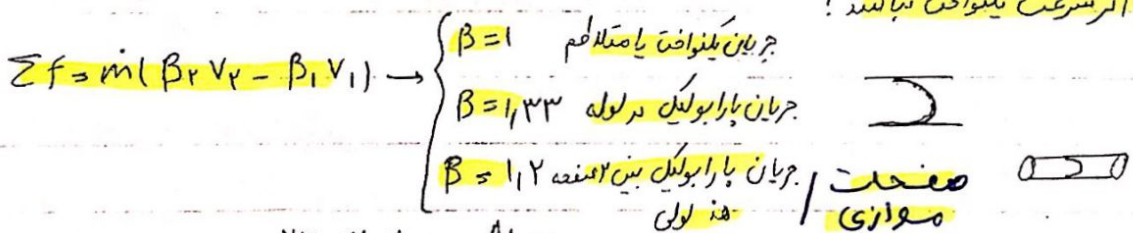 اگر سرعت یکنواخت نباشد !
Σf = ṁ(β₂V₂ - β₁V₁) →
β = 1 جریان یکنواخت یا متلاطم
β = ۱,۳۳ جریان پارابولیک در لوله
β = ۱,۲ جریان پارابولیک بین ۲ صفحه / صفحات
موازی